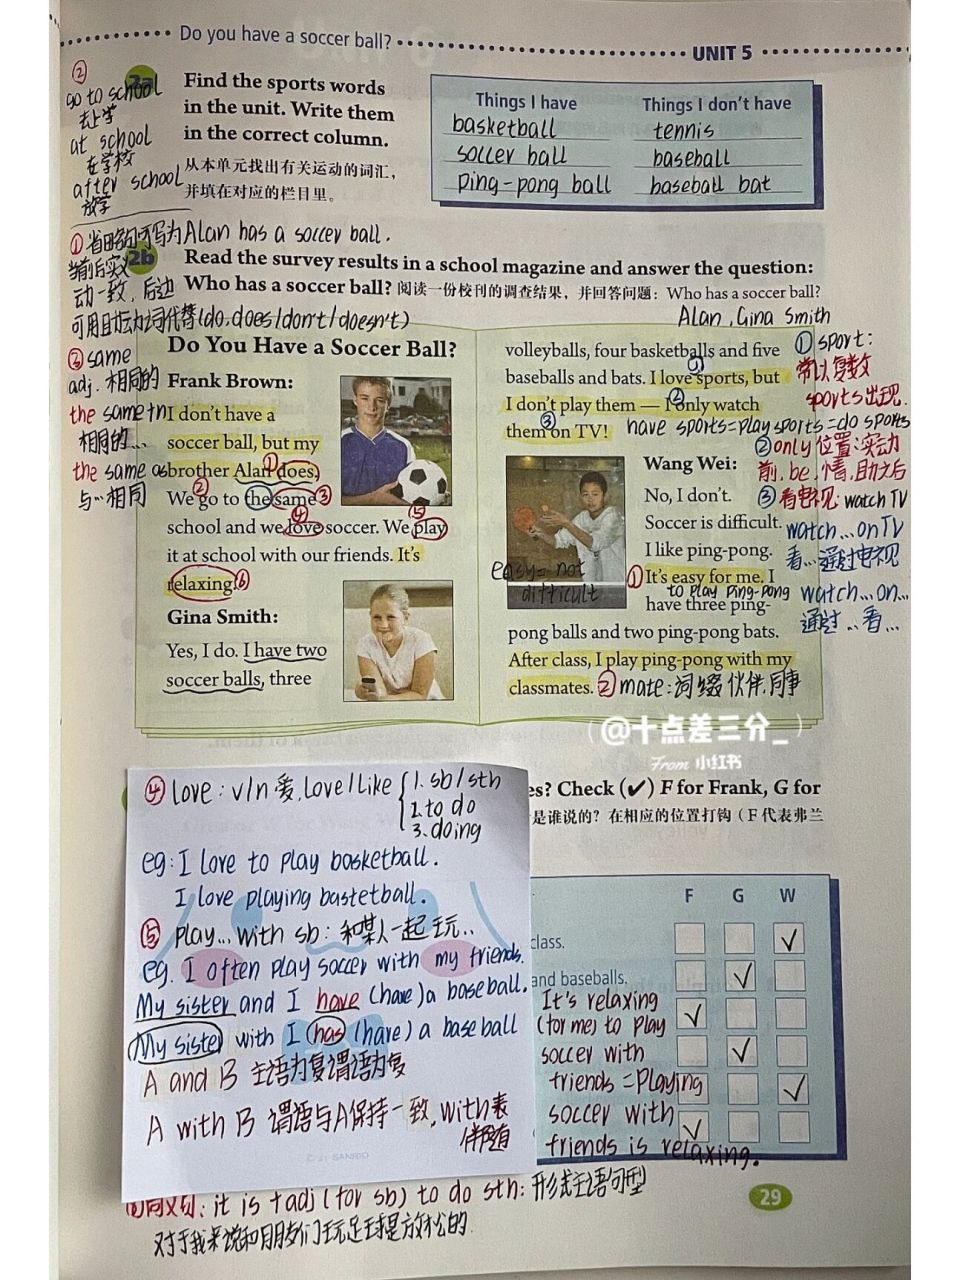 Do you have a soccer ball?
UNIT 5
②
go to school
去上学
at school
在学校
after school
放学
2a
Find the sports words
in the unit. Write them
in the correct column.
从本单元找出有关运动的词汇，
并填在对应的栏目里。
Things I have
Things I don't have
basketball
tennis
soccer ball
baseball
ping-pong ball
baseball bat
① 省略句可写为Alan has a soccer ball.
当前后实义
动一致，后边
可用助动词代替(do,does/don't/doesn't)
2b
Read the survey results in a school magazine and answer the question:
Who has a soccer ball? 阅读一份校刊的调查结果，并回答问题：Who has a soccer ball?
Alan, Gina Smith
③ same
adj. 相同的
the same+n
相同的...
the same as
与...相同
Do You Have a Soccer Ball?
Frank Brown:
I don't have a
soccer ball, but my
brother Alan does.
①
②
③
We go to the same
④
⑤
school and we love soccer. We play
it at school with our friends. It's
relaxing. ⑥
Gina Smith:
Yes, I do. I have two
soccer balls, three
volleyballs, four basketballs and five
baseballs and bats. I love sports, but
①
②
I don't play them — I only watch
③
them on TV!
have sports=play sports=do sports
① sport:
常以复数
sports出现.
② only 位置:实动
前, be,情,助之后
③ 看电视: watch TV
watch...on TV
看...通过电视
watch...on...
通过...看...
Wang Wei:
No, I don't.
Soccer is difficult.
I like ping-pong.
① It's easy for me. I
to play ping-pong
easy= not
difficult
have three ping-
pong balls and two ping-pong bats.
After class, I play ping-pong with my
classmates. ② mate:词缀 伙伴,同事
@十点差三分_
From 小红书
es? Check (✓) F for Frank, G for
是谁说的？在相应的位置打钩（F 代表弗兰
④ love: v/n 爱, Love/Like
1. sb/sth
2. to do
3. doing
eg: I love to play basketball.
I love playing bastetball.
⑤ play... with sb: 和某人一起玩..
eg. I often play soccer with my friends.
My sister and I have (have) a baseball.
My sister with I has (have) a baseball
A and B 主语为复谓语为复
A with B 谓语与A保持一致, with表
伴随
SANRIO
F G W
class.
✓
and baseballs.
✓
✓
✓
✓
✓
It's relaxing
(for me) to play
soccer with
friends =Playing
soccer with
friends is relaxing.
⑥同义句: it is +adj (for sb) to do sth: 形式主语句型
对于我来说和朋友们玩足球是放松的.
29